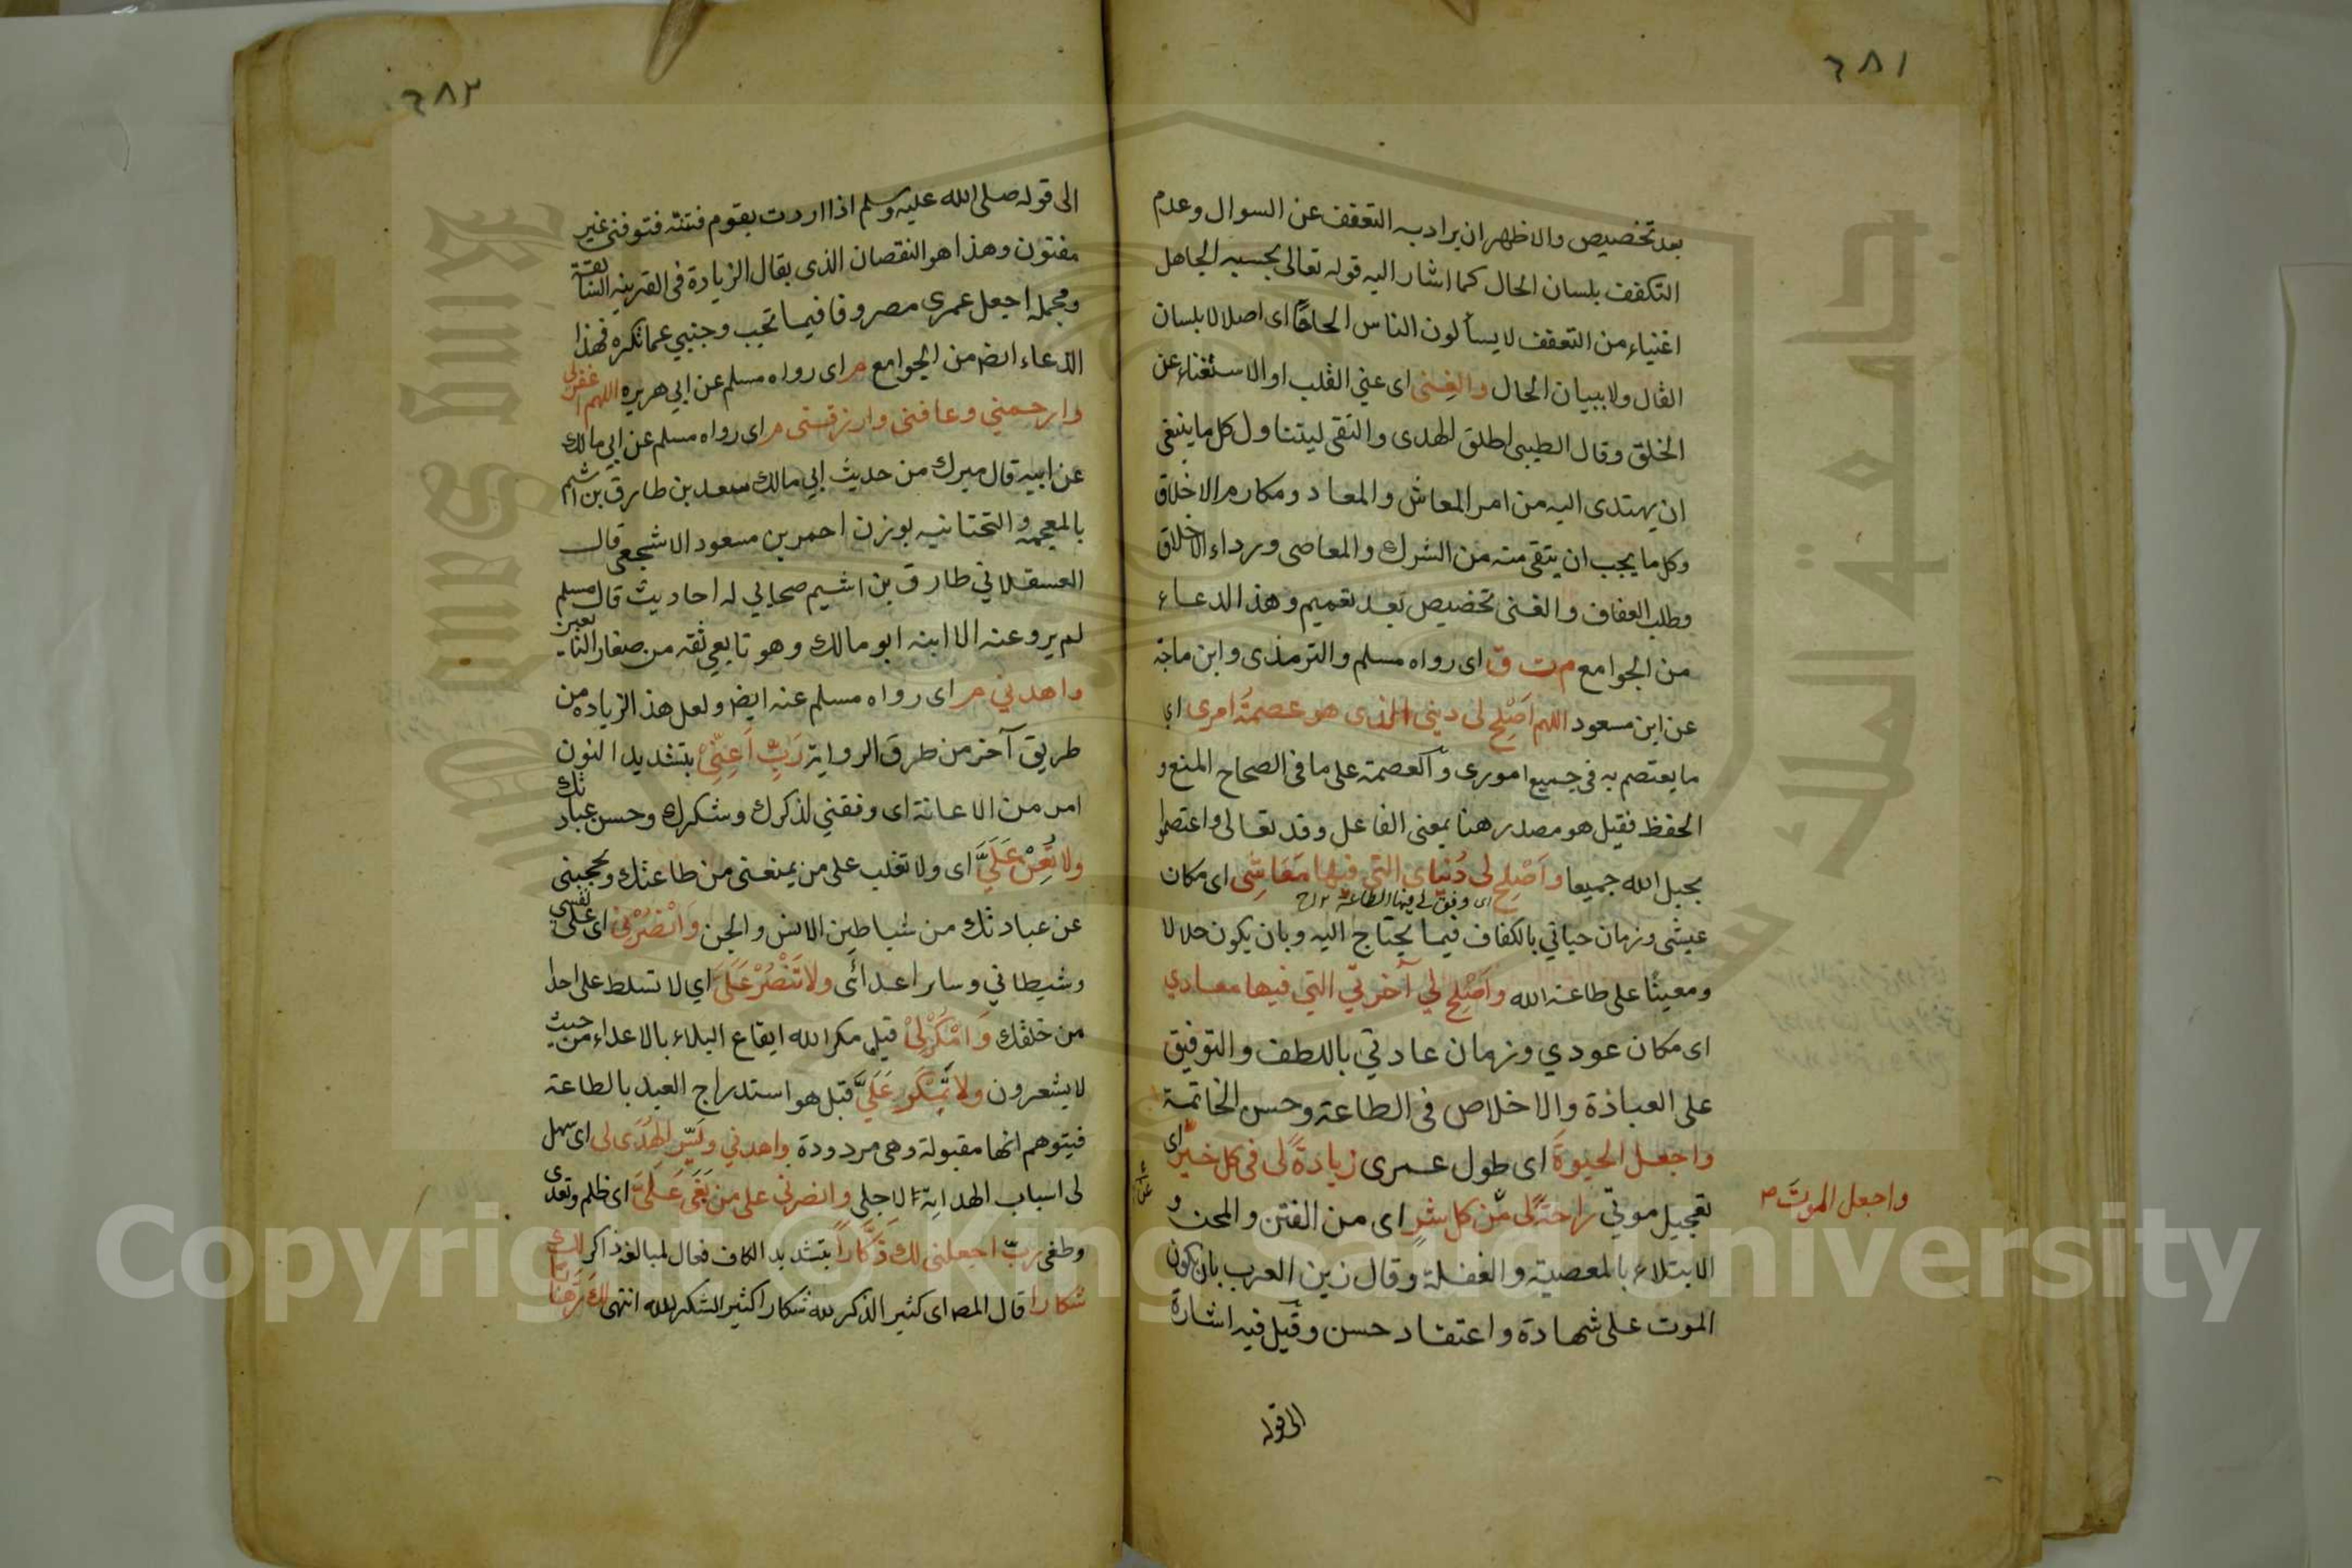 ٦٨١
بعد تخصيص والاظهر ان يراد به التعفف عن السوال وعدم
التكفف بلسان الحال كما اشار اليه قوله تعالى يحسبهم الجاهل
اغنياء من التعفف لا يسألون الناس الحافًا اى اصلا لا بلسان
القال ولا ببيان الحال والغِنى اى غنى القلب او الاستغناء عن
الخلق وقال الطيبى اطلق الهدى والتقى ليتناول كل ما ينبغى
ان يهتدى اليه من امر المعاش والمعاد ومكارم الاخلاق
وكل ما يجب ان يتقى منه من الشرك والمعاصى ورداء الاخلاق
وطلب العفاف والغنى تخصيص بعد تعميم وهذ الدعاء
من الجوامع م ت ق اى رواه مسلم والترمذى وابن ماجة
عن ابن مسعود اللهم اَصْلِح لى دينى الذى هو عصمةُ امرى اي
ما يعتصم به فى جميع امورى و العصمة على ما فى الصحاح المنع و
الحفظ فقيل هو مصدر هنا بمعنى الفاعل وقد تعالى واعتصموا
بحبل الله جميعا واَصْلِح لى دُنياى التى فيها مَعَاشِى اى مكان
اى وفق لى فيها الطاعة
عيشى وزمان حياتي بالكفاف فيما يحتاج اليه وبان يكون حلالا
ومعينًا على طاعة الله واَصْلِح لي آخرتي التي فيها معادي
اى مكان عودي وزمان عادتي باللطف والتوفيق
على العباذة والاخلاص فى الطاعة وحسن الخاتمة
واجعل الحيوةَ اى طول عمرى زيادةً لى فى كل خيرٍ اى
واجعل الموتَ
تعجيل موتي راحةً لى مّن كل شرٍ اى من الفتن والمحن و
الابتلاء بالمعصية والغفلة وقال زين العرب بان يكون
الموت على شهادة واعتقاد حسن وقيل فيه اشارة
الى قوله
٦٨٢
الى قوله صلى الله عليه وسلم اذا اردت بقوم فتنة فتوفنى غير
مفتون وهذا هو النقصان الذى يقال الزيادة فى القرينة السابقة
ومجمله اجعل عمرى مصروفا فيما تحب وجنبي عما تكره فهذا
الدعاء ايض من الجوامع م اى رواه مسلم عن ابي هريره اللهم اغفرلى
وارحمني وعافنى وارزقنى م اى رواه مسلم عن ابي مالك
عن ابيه قال ميرك من حديث ابي مالك سعد بن طارق بن اشيم
بالمعجمه والتحتانيه بوزن احمر بن مسعود الاشجعى قال
العسقلاني طارق بن اشيم صحابي له احاديث قال مسلم
لم يرو عنه الا ابنه ابو مالك وهو تابعي ثقه من صغار التابعين
واهدني م اى رواه مسلم عنه ايض ولعل هذ الزياده من
طريق آخر من طرق الرواية رَبِّ اَعِنِّىْ بتشديد النون
امر من الاعانة اى وفقني لذكرك وشكرك وحسن عبادتك
ولا تُعِنْ عَلَيَّ اى ولا تغلب على من يمنعنى من طاعتك ويحجبنى
عن عبادتك من شياطين الانس والجن وَانْصُرْنِى اى على نفسي
وشيطاني وسائر اعدائى ولا تَنْصُرْ عَلَىَّ اي لا تسلط على احدا
من خلقك وَامْكُرْلِىْ قيل مكر الله ايقاع البلاء بالاعداء من حيث
لا يشعرون ولا تَمْكُرْ عَلَيَّ قبل هو استدراج العبد بالطاعة
فيتوهم انها مقبولة وهى مردودة واهدني ويَسِّرِ الهُدَى لى اى سهل
لى اسباب الهداية لاجلى وانصرنى على من بَغَى عَلَىَّ اى ظلم وتعدى
وطغى ربّ اجعلنى لك ذَكَّاراً بتشديد الكاف فعال لمبالغة ذاكر لك
شكارا قال المص اى كثير الذكر لله شكارا كثير الشكر لله انتهى لك رَهّابًا